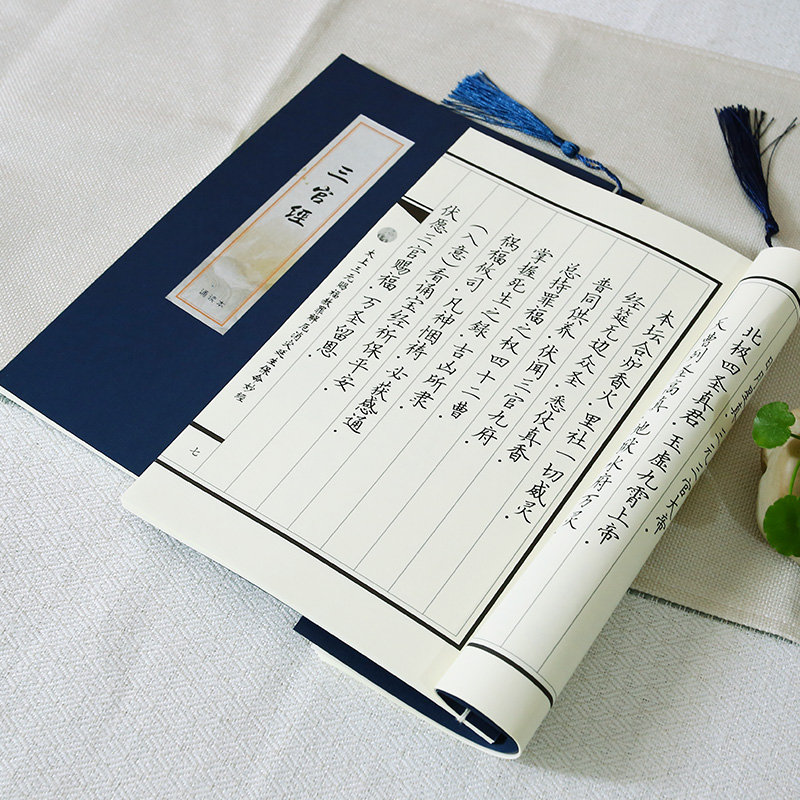 三官經
诵读本
三元三官大帝
北极四圣真君．玉虚九霄上帝．
本坛合炉香火．里社一切威灵．
经筵无边众圣．悉仗真香．
普同供养．伏闻三官九府．
总持罪福之权四十二曹．
掌握死生之録．吉凶所隶．
祸福攸司．凡神悃祷．必获感通．
（入意）看诵宝经祈保平安．
伏愿三官赐福．万圣留恩．
太上三元赐福赦罪解厄消灾延生保命妙经
七